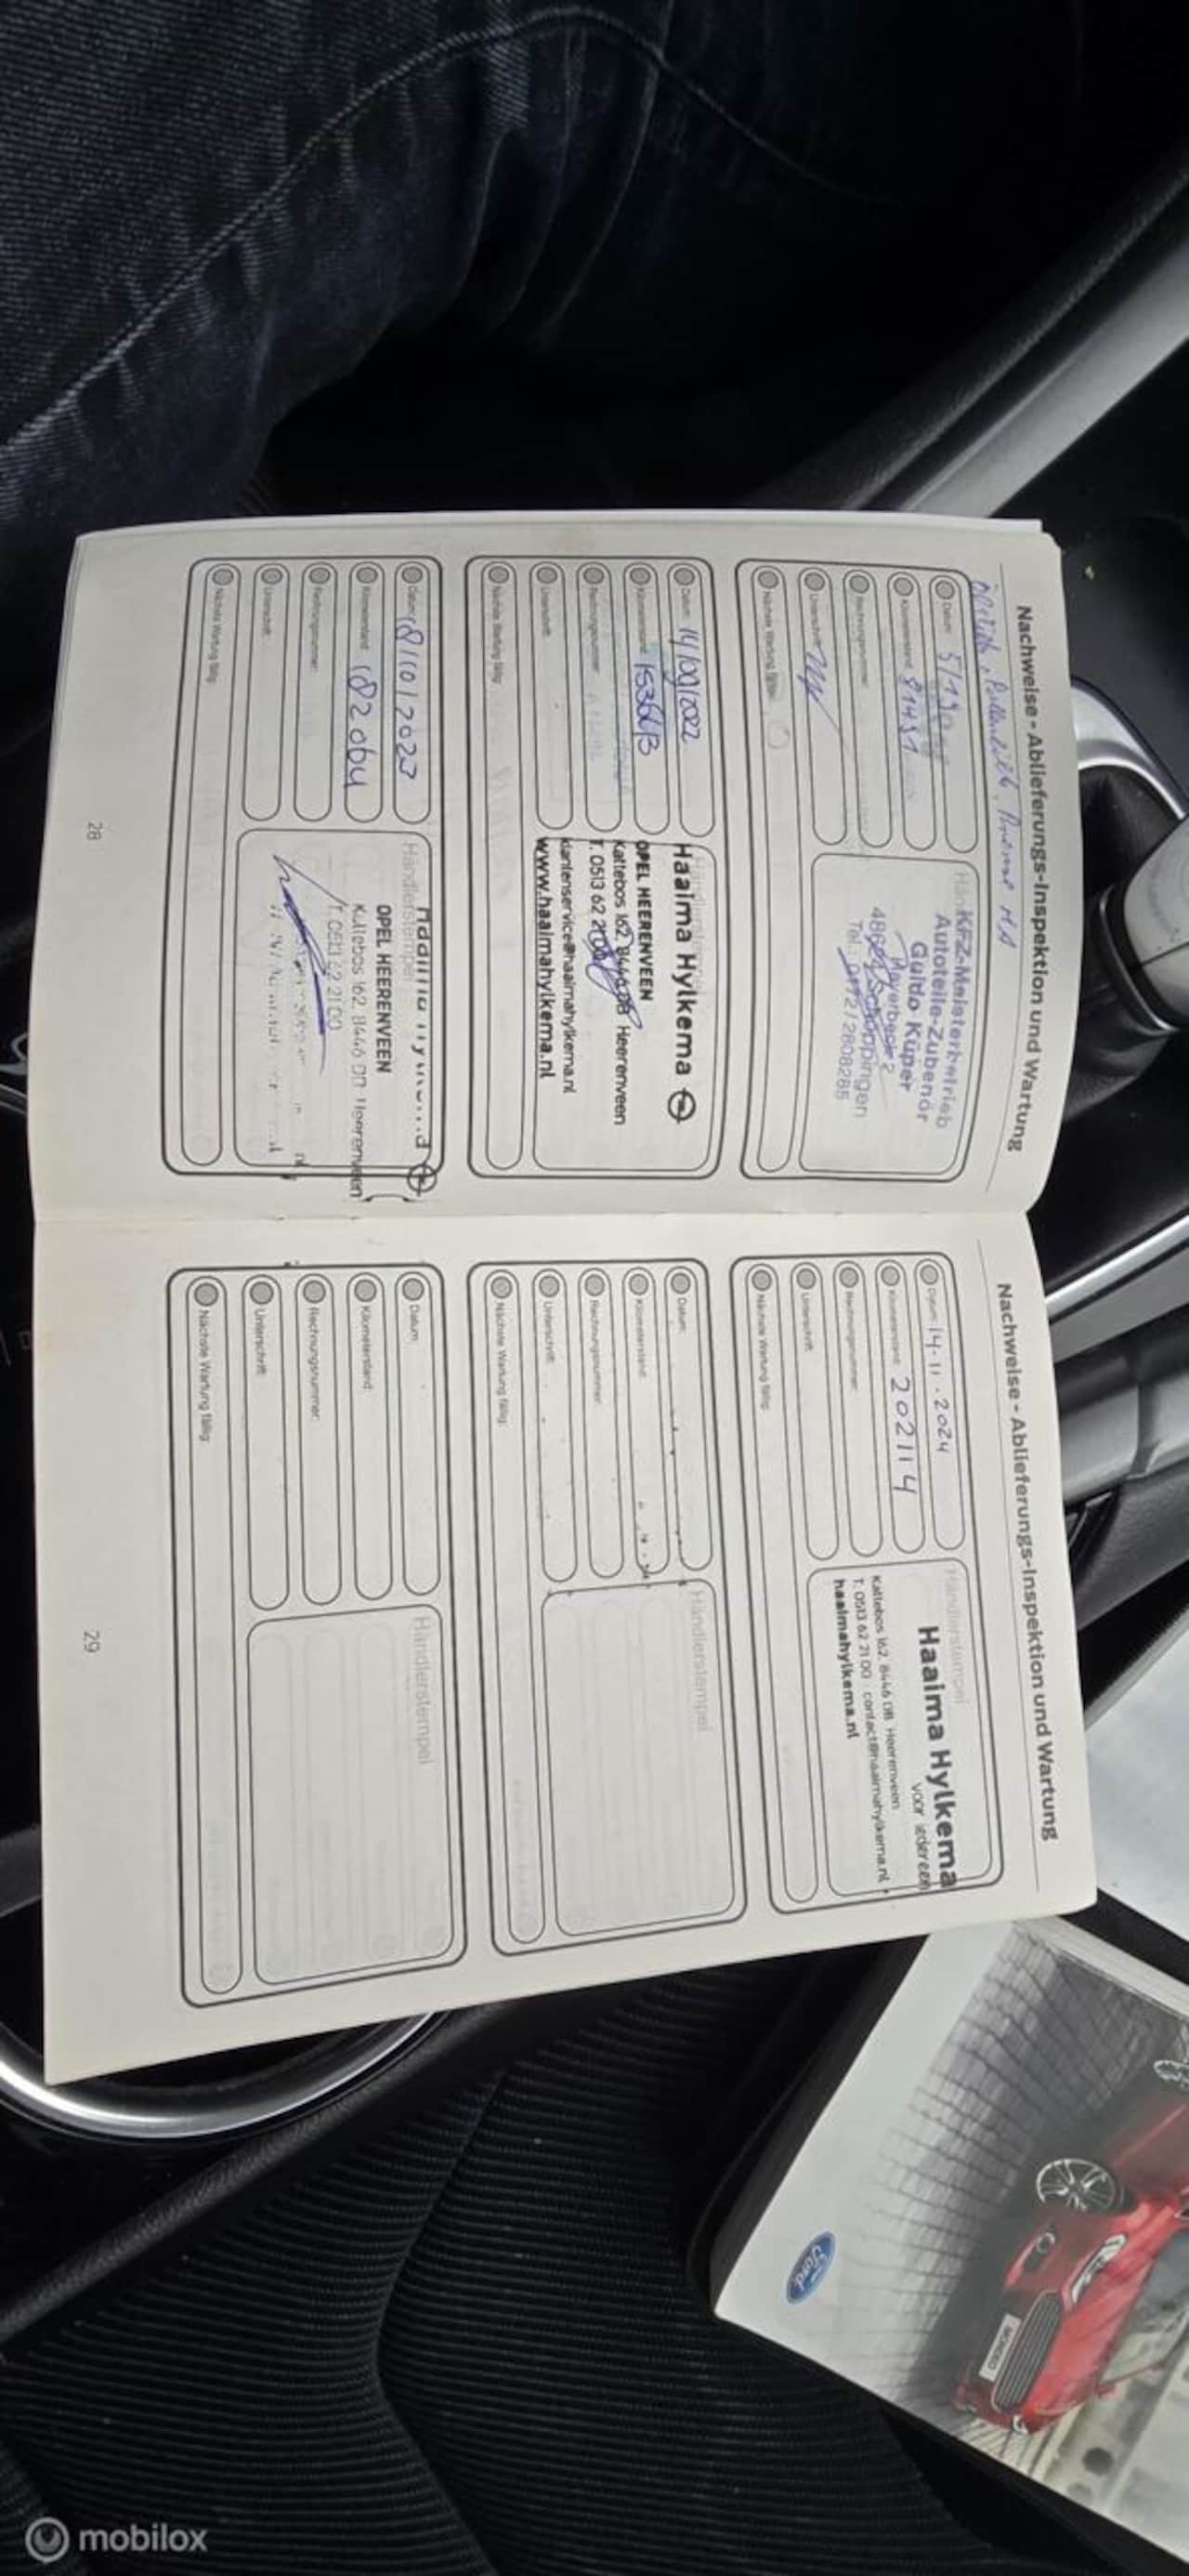 Nachweise - Ablieferungs-Inspektion und Wartung
Datum:
Kilometerstand: 91451
Rechnungsnummer:
Unterschrift:
Nächste Wartung fällig:
KFZ-Meisterbetrieb
Autoteile-Zubehör
Guido Küper
Schöppingen
Datum: 14/09/2022
Kilometerstand:
Rechnungsnummer:
Unterschrift:
Nächste Wartung fällig:
Händlerstempel
Haaima Hylkema
OPEL HEERENVEEN
Kattebos 162, 8446 DB Heerenveen
T. 0513 62 21 00
klantenservice@haaimahylkema.nl
www.haaimahylkema.nl
Datum: 18/10/2023
Kilometerstand: 182064
Rechnungsnummer:
Unterschrift:
Nächste Wartung fällig:
Händlerstempel
OPEL HEERENVEEN
Kattebos 162, 8446 DB Heerenveen
T. 0513 62 21 00
28
Nachweise - Ablieferungs-Inspektion und Wartung
Datum: 14-11-2024
Kilometerstand: 202114
Rechnungsnummer:
Unterschrift:
Nächste Wartung fällig:
Händlerstempel
Haaima Hylkema
voor iedereen
Kattebos 162, 8446 DB Heerenveen
T. 0513 62 21 00 contact@haaimahylkema.nl
haaimahylkema.nl
Datum:
Kilometerstand:
Rechnungsnummer:
Unterschrift:
Nächste Wartung fällig:
Händlerstempel
Datum:
Kilometerstand:
Rechnungsnummer:
Unterschrift:
Nächste Wartung fällig:
Händlerstempel
29
Ford
MONDEO
mobilox